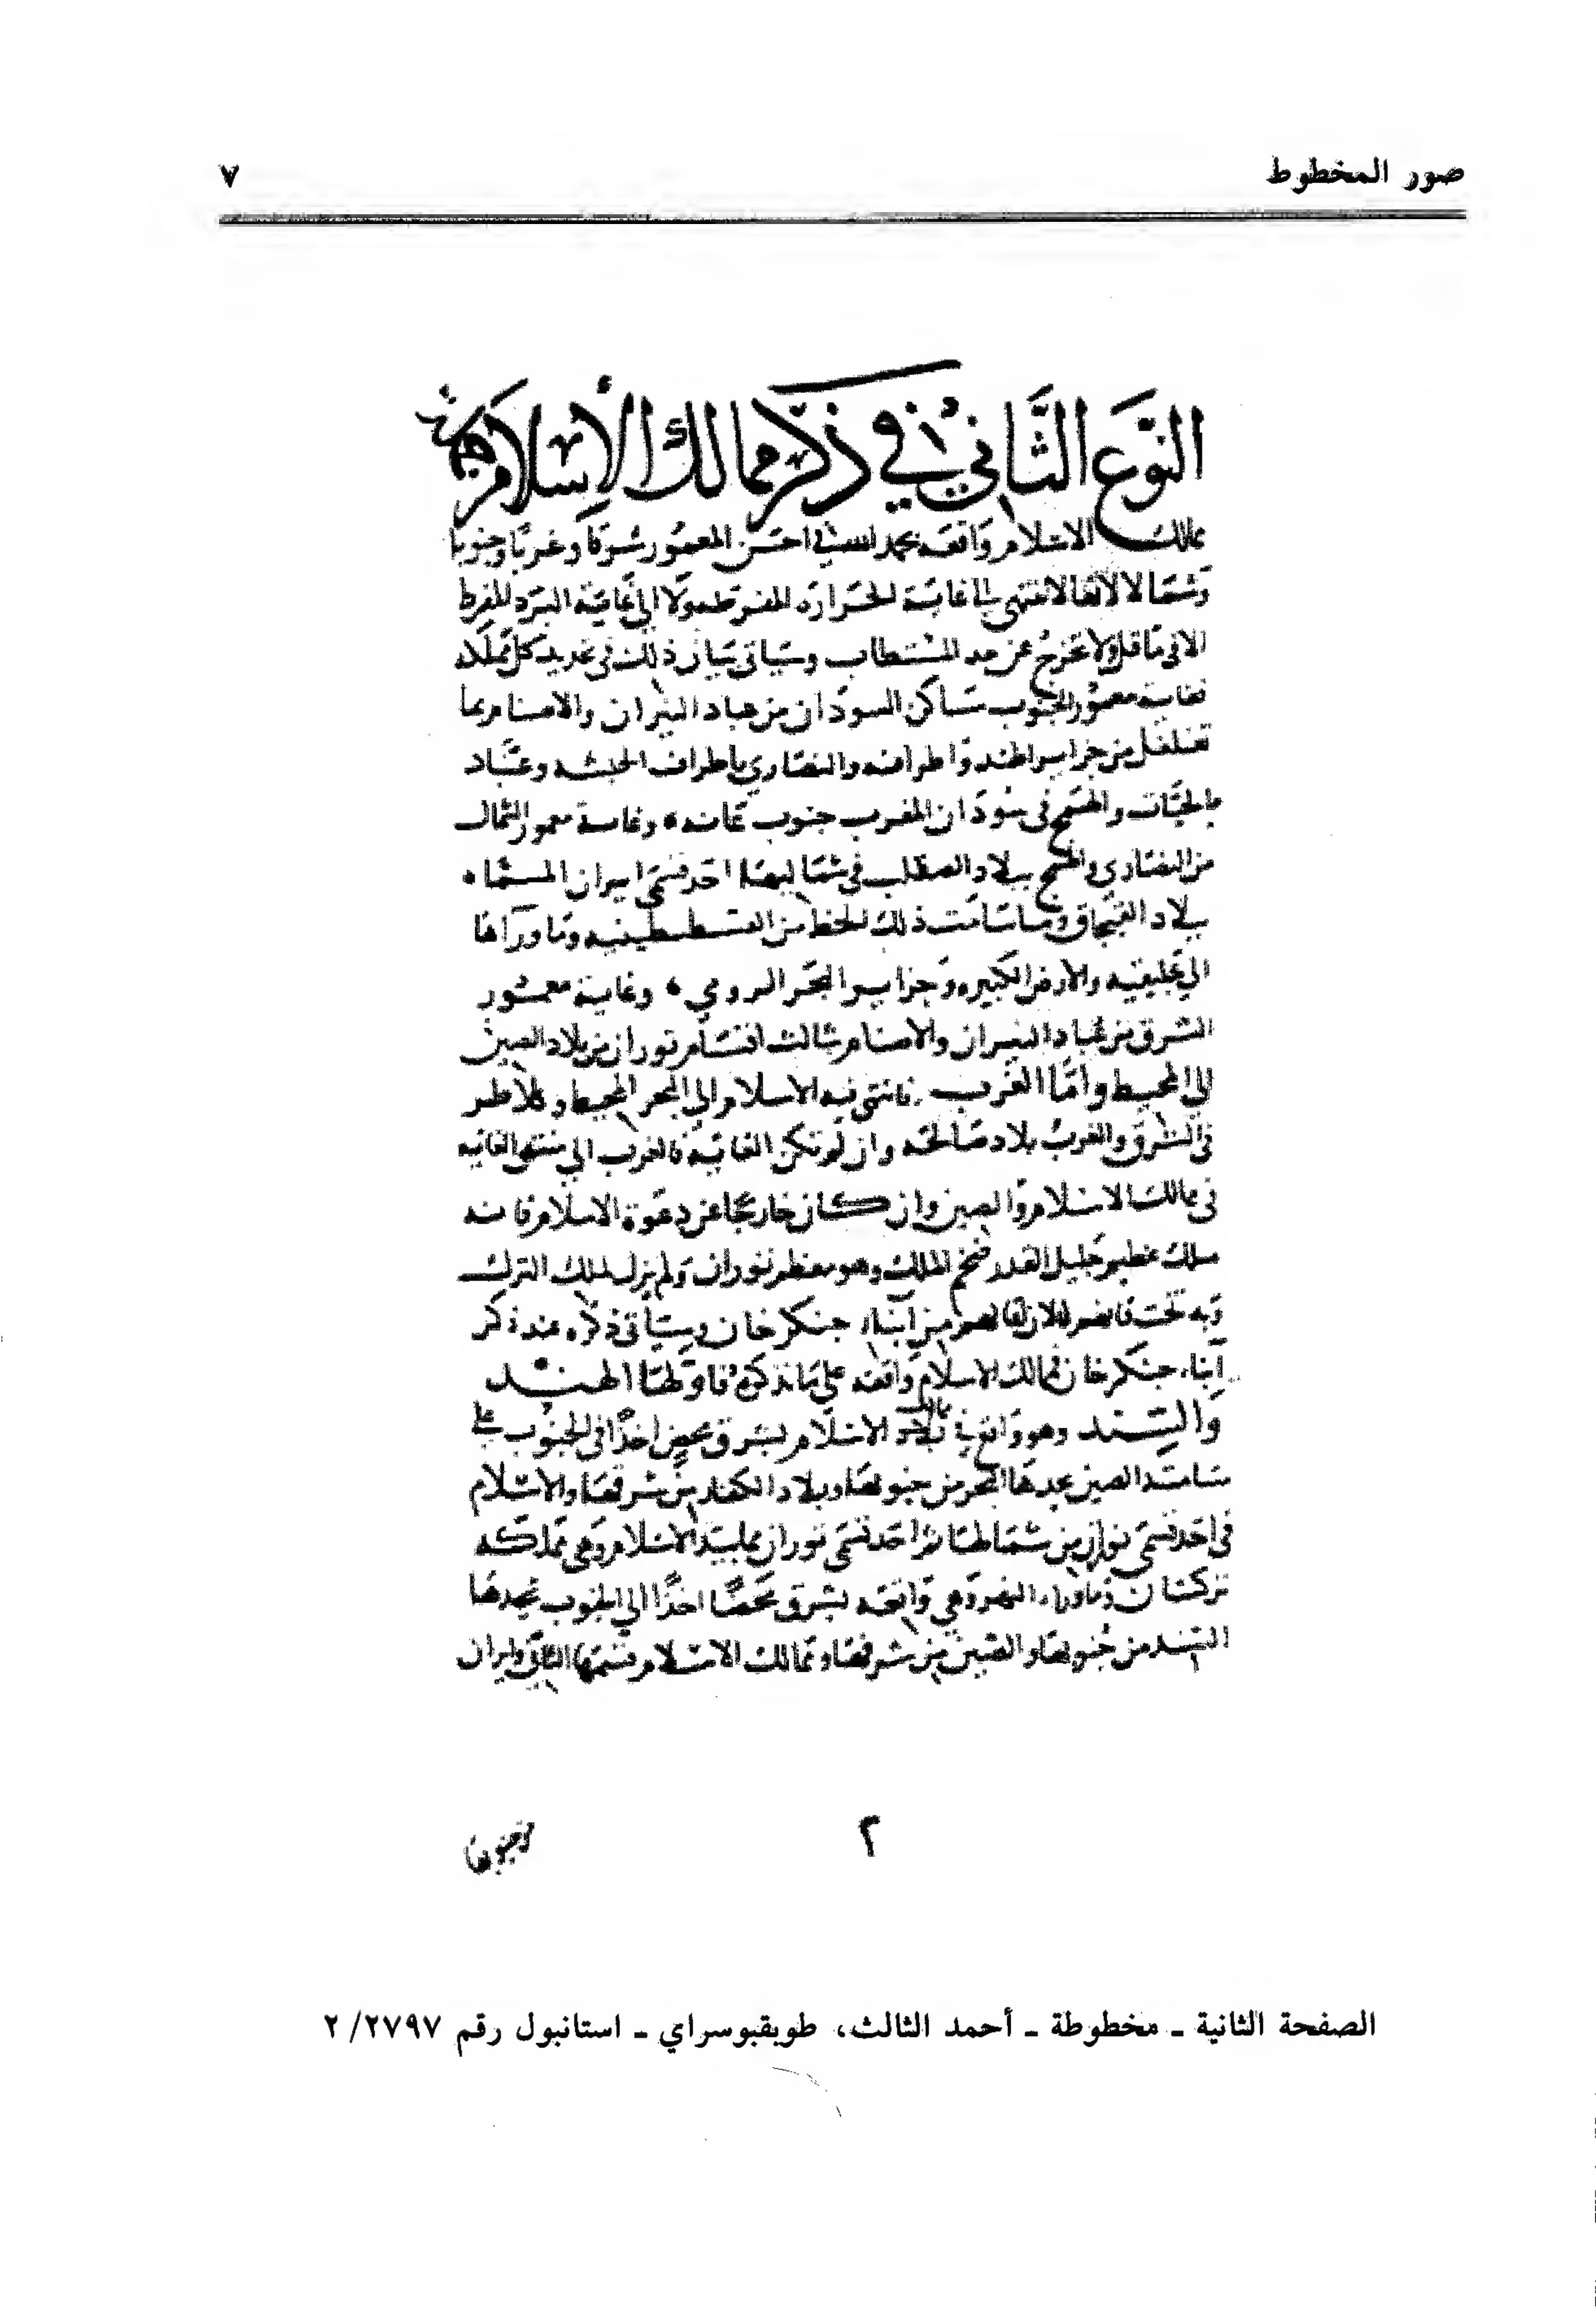 صور المخطوط ٧
النوع الثاني في ذكر ممالك الإسلام
ممالك الاسلام واقعة بحمد الله في احسن المعمور شرقا وغربا وجنوبا
وشمالا لانها لا تنتهي الى غاية الحرارة المفرطه ولا الى غاية البرد المفرط
الا في ما قل ولا تخرج عن حد المستطاب وسياتي بيان ذلك في تحديد كل مملكه
فغاية معمور الجنوب مساكن السودان من عباد النيران والاصنام بما
تغلغل من جزاير الهند واطرافه والنصارى باطراف الحبشه وعباد
الحيات والهمج في سودان المغرب جنوب غانه وغاية معمور الشمال
من النصارى والهمج ببلاد الصقلب في شماليها احد قسمى ايران المسماه
ببلاد القبجاق وما سامت ذلك الخط من القسطنطينيه وما ورآها
الى جليقيه والارض الكبيره وجزاير البحر الرومي وغاية معمور
الشرق من عباد النيران والاصنام ثالث اقسام توران من بلاد الصين
الى المحيط واما الغرب فانتهى فيه الاسلام الى البحر المحيط
في الشرق والغرب بلاد صالحه وان لم تكن الغاية فالغرب الى منتهى الغايه
في ممالك الاسلام والصين وان كان خارجا عن دعوة الاسلام فانه
ملك عظيم جليل القدر ضخم الملك وهو معظم توران ولم يزل لملك الترك
وبه تخت من ابناء جنكز خان وسياتي ذكره عند ذكر
ابناء جنكز خان فممالك الاسلام واقعه على ما نذكره فاولها الهند
والسند وهو واقع في ممالك الاسلام بشرق محض اخذا في الجنوب على
سامتة الصين يحدها البحر من جنوبها وبلاد الكفار من شرقها والاسلام
في احد قسمى توران من شمالها ثم احد قسمى توران الاسلام وهي مملكه
تركستان وما وراء النهر وهي واقعه بشرق محضا اخذا الى الجنوب يحدها
السند من جنوبها والصين من شرقها وممالك الاسلام قسمها الثاني وايران
٢
الصفحة الثانية ـ مخطوطة ـ أحمد الثالث، طوبقبوسراي ـ استانبول رقم ٢/٢٧٩٧